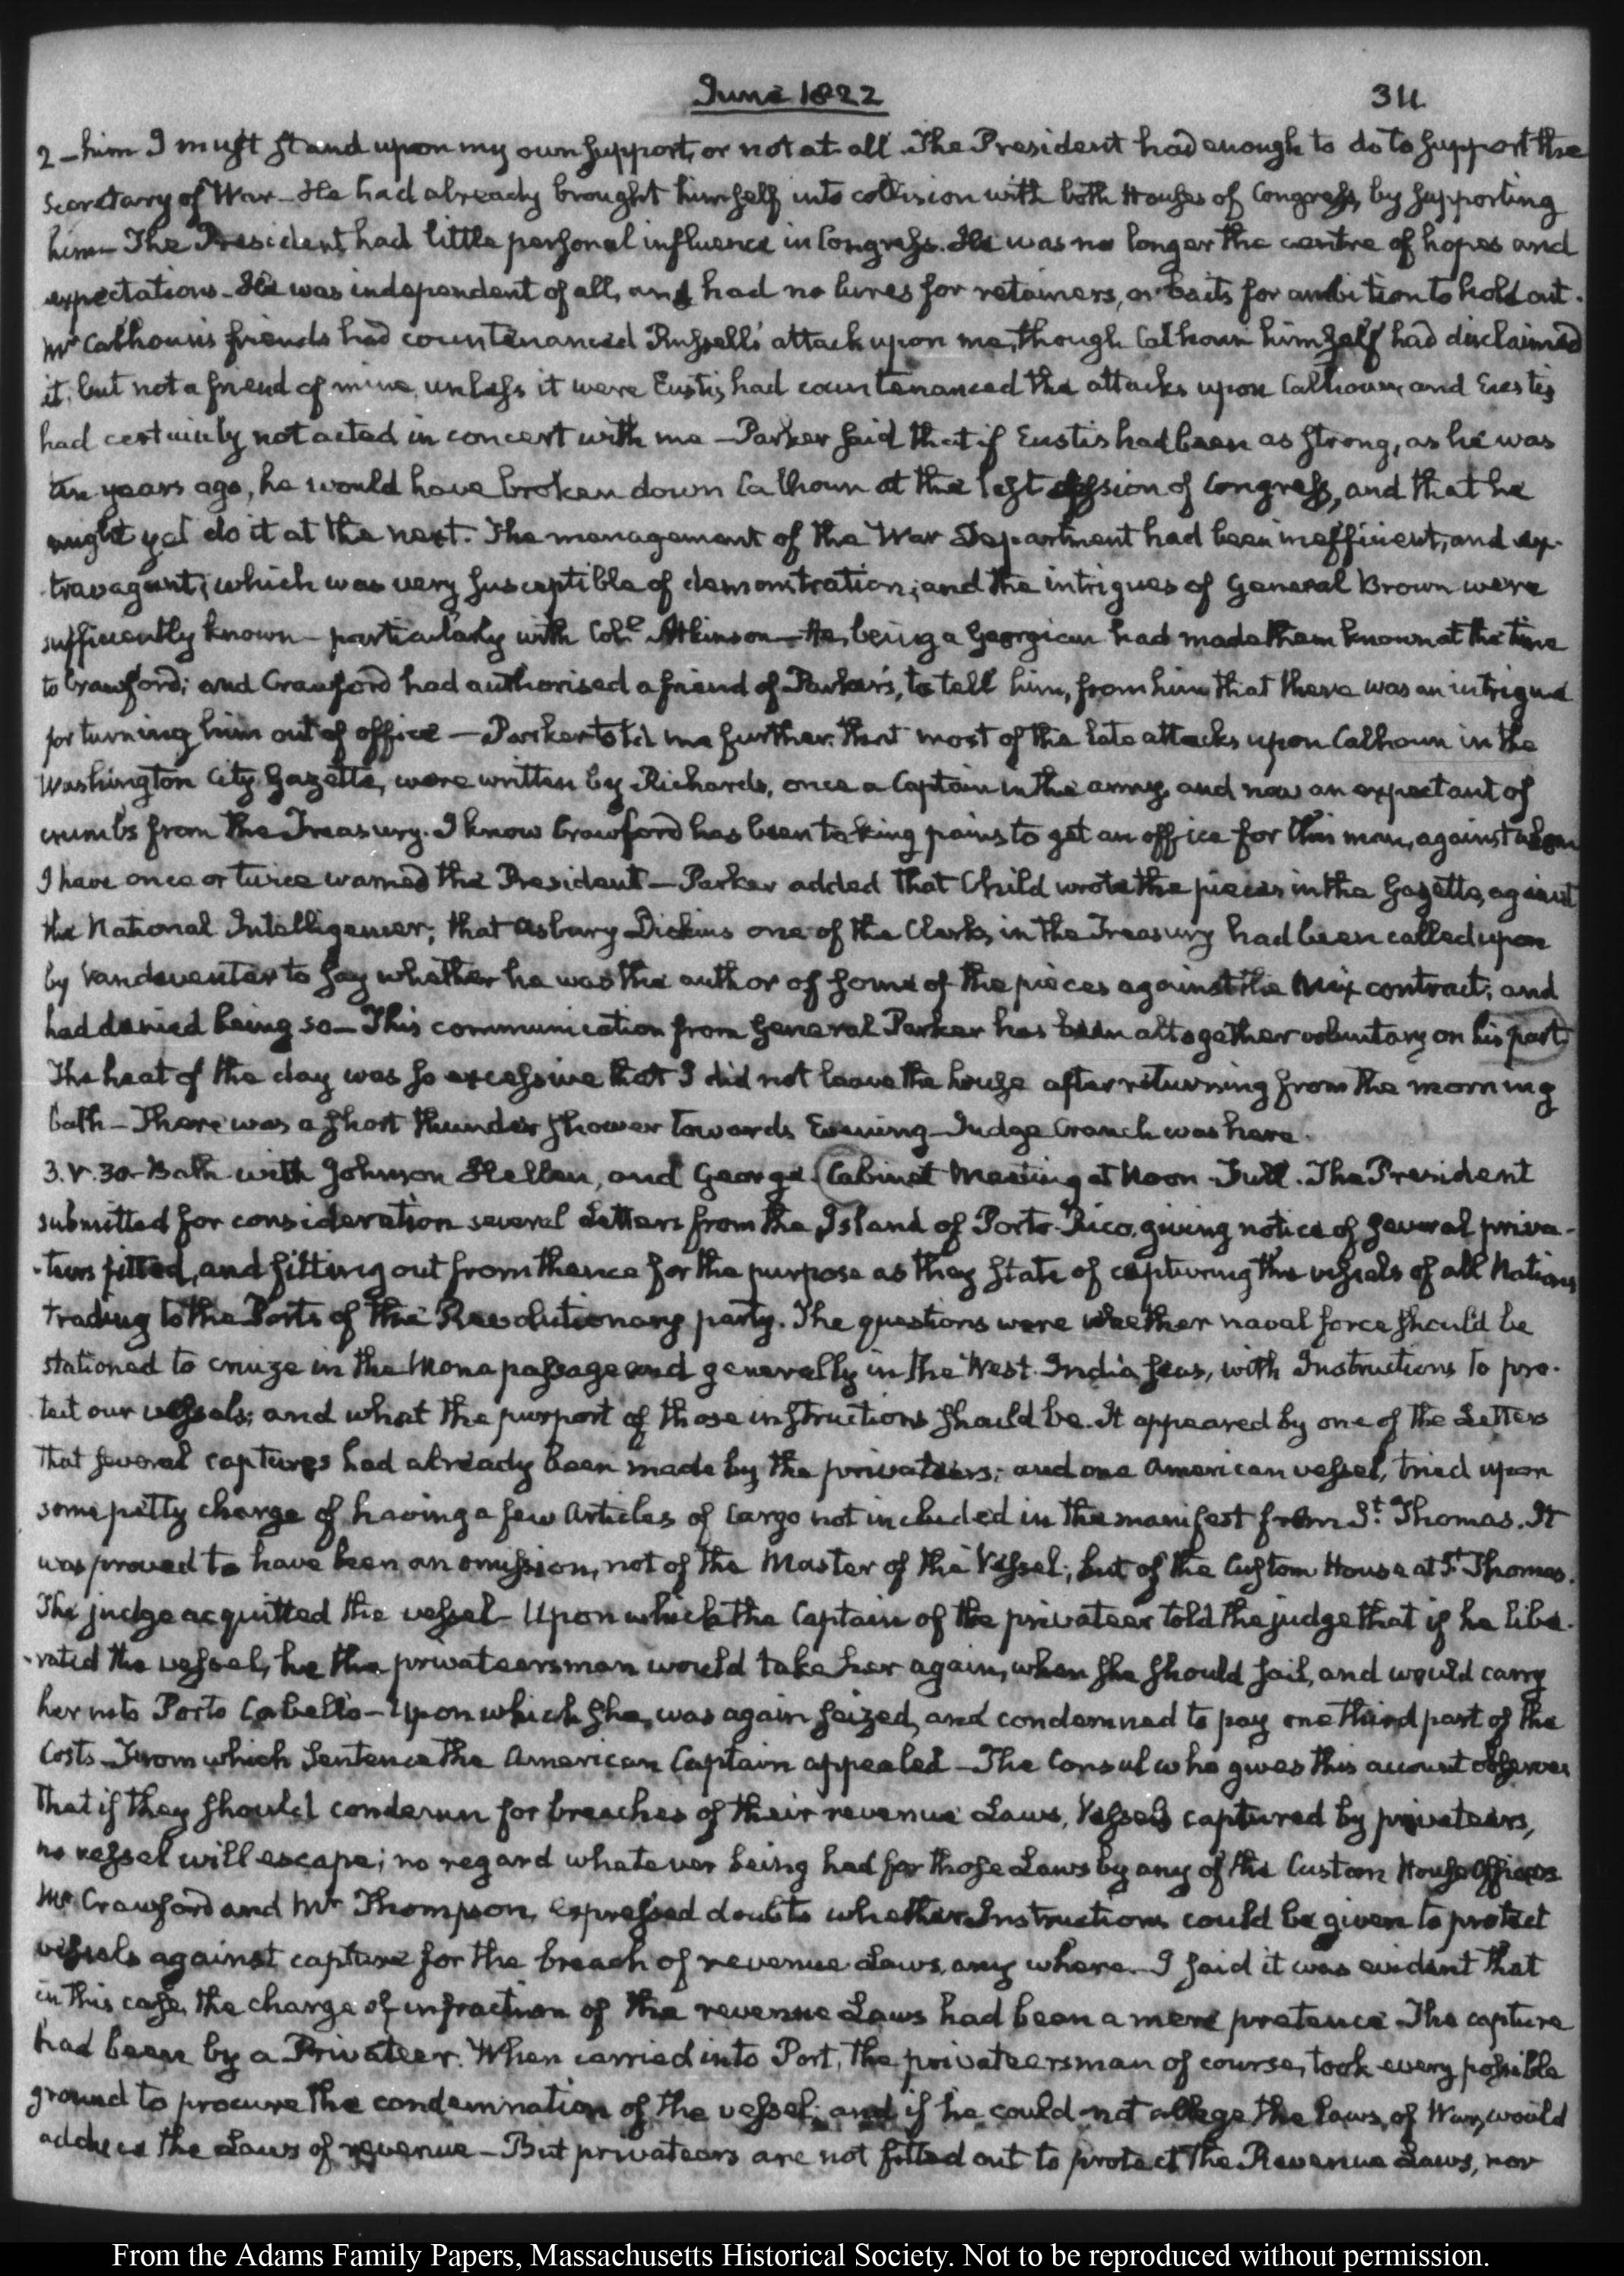 June 1822
311.
2 - him I must stand upon my own support, or not at all. The President had enough to do to support the
Secretary of War - He had already brought himself into collision with both Houses of Congress, by supporting
him - The President had little personal influence in Congress. He was no longer the centre of hopes and
expectations - He was independent of all, and had no lures for retainers, or baits for ambition to hold out.
Mr Calhoun's friends had countenanced Russell's attack upon me, though Calhoun himself had disclaimed
it; but not a friend of mine, unless it were Eustis, had countenanced the attacks upon Calhoun, and Eustis
had certainly not acted in concert with me - Parker said that if Eustis had been as strong, as he was
ten years ago, he would have broken down Calhoun at the last session of Congress, and that he
might yet do it at the next. The management of the War Department had been inefficient, and ex-
travagant; which was very susceptible of demonstration; and the intrigues of General Brown were
sufficiently known - particularly with Coll. Atkinson - He, being a Georgian had made them known at the time
to Crawford; and Crawford had authorised a friend of Parker's, to tell him, from him that there was an intrigue
for turning him out of office - Parker told me further that most of the late attacks upon Calhoun in the
Washington City Gazette, were written by Richards, once a Captain in the army, and now an expectant of
crumbs from the Treasury. I know Crawford has been taking pains to get an office for this man, against whom
I have once or twice warned the President - Parker added that Child wrote the pieces in the Gazette, against
the National Intelligencer; that Asbury Dickins one of the Clerks in the Treasury had been called upon
by Vandeventer to say whether he was the author of some of the pieces against the Mix contract; and
had denied being so - This communication from General Parker has been altogether voluntary on his part.
The heat of the day was so excessive that I did not leave the house after returning from the morning
bath - There was a short thunder shower towards Evening - Judge Cranch was here.
3. V. 30. Bath with Johnson Hellen, and George. Cabinet Meeting at Noon - Full. The President
submitted for consideration several Letters from the Island of Porto-Rico, giving notice of several priva-
-teers fitted, and fitting out from thence for the purpose as they state of capturing the vessels of all Nations
trading to the Ports of the Revolutionary party. The questions were whether naval force should be
stationed to cruize in the Mona passage and generally in the West-India seas, with Instructions to pro-
-tect our vessels; and what the purport of those instructions should be. It appeared by one of the Letters
that several captures had already been made by the privateers; and one American vessel, tried upon
some petty charge of having a few Articles of Cargo not included in the manifest from St. Thomas. It
was proved to have been an omission, not of the Master of the Vessel; but of the Custom House at St Thomas.
The judge acquitted the vessel - Upon which the Captain of the privateer told the judge that if he libe-
-rated the vessel, he the privateersman would take her again, when she should sail, and would carry
her into Porto Cabello - Upon which she was again seized, and condemned to pay one third part of the
Costs - From which Sentence the American Captain appealed - The Consul who gives this account observes
that if they should condemn for breaches of their revenue Laws, Vessels captured by privateers,
no vessel will escape; no regard whatever being had for those Laws by any of the Custom House Officers
Mr Crawford and Mr Thompson, expressed doubts whether Instructions could be given to protect
vessels against capture for the breach of revenue Laws, any where. I said it was evident that
in this case, the charge of infraction of the revenue Laws had been a mere pretence. The capture
had been by a Privateer. When carried into Port, the privateersman of course, took every possible
ground to procure the condemnation of the vessel; and if he could not allege the Laws of War, would
adduce the Laws of revenue - But privateers are not fitted out to protect the Revenue Laws, nor
From the Adams Family Papers, Massachusetts Historical Society. Not to be reproduced without permission.